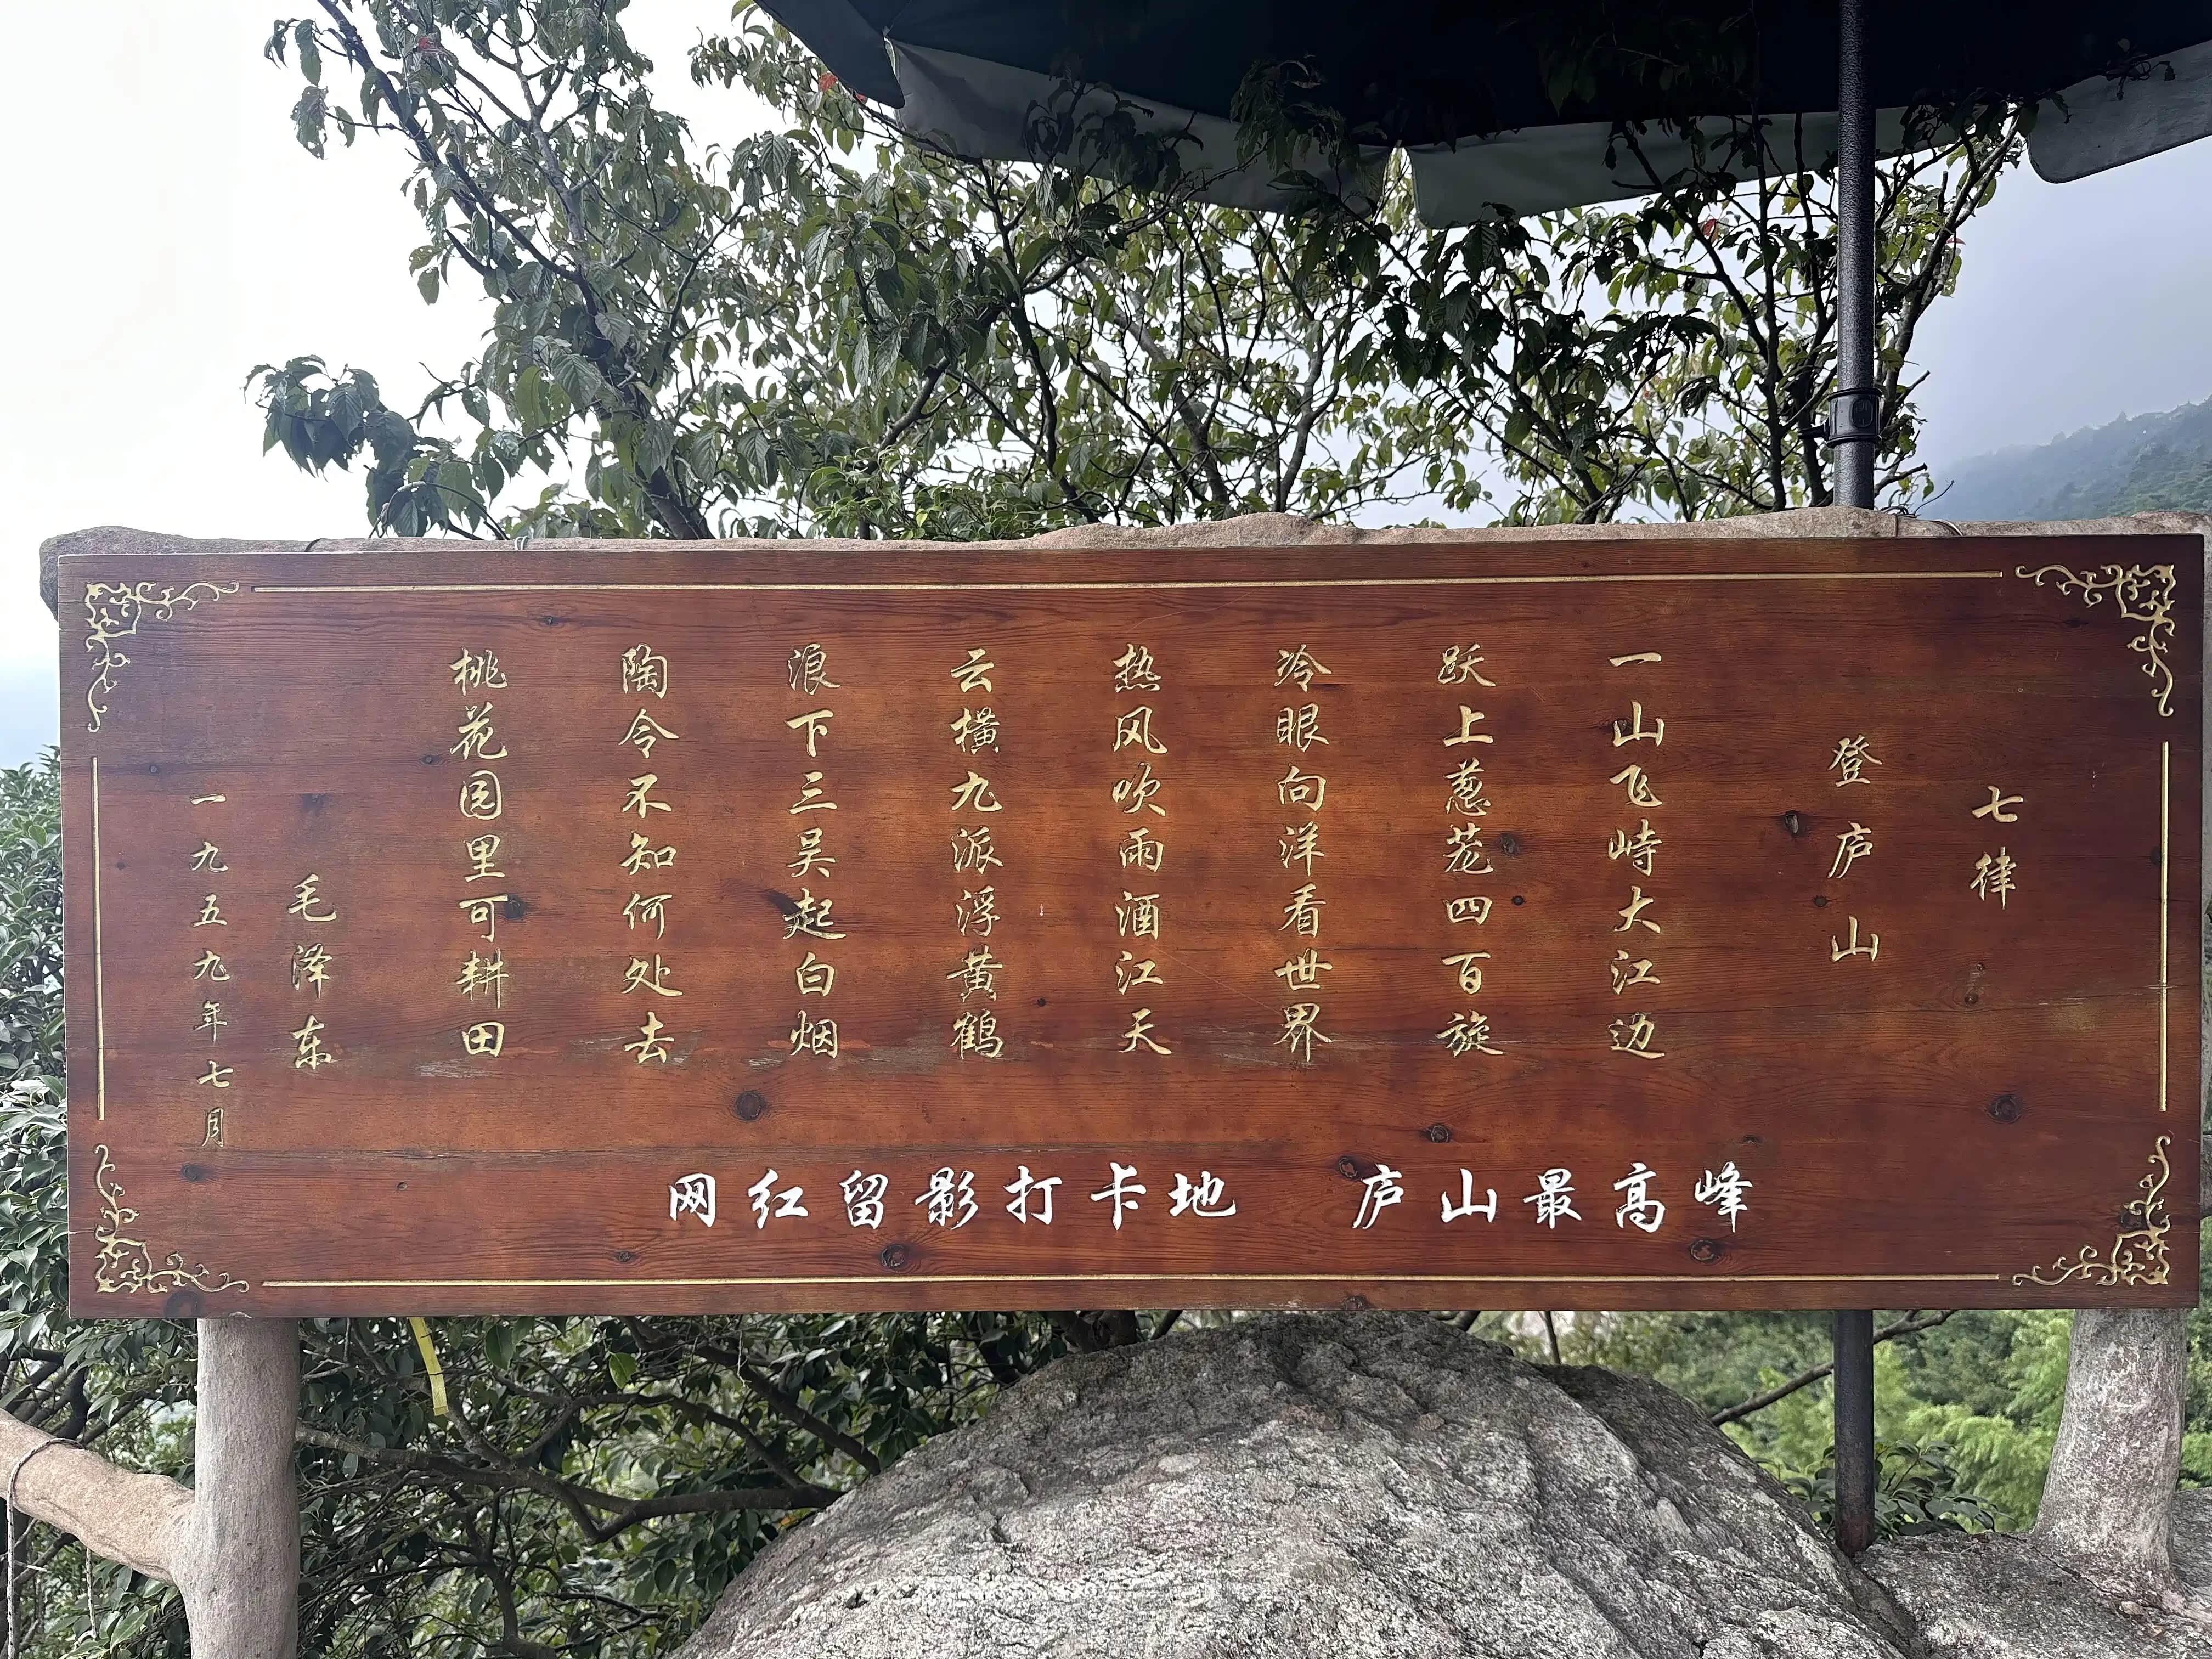 七律
登庐山
一山飞峙大江边
跃上葱茏四百旋
冷眼向洋看世界
热风吹雨酒江天
云横九派浮黄鹤
浪下三吴起白烟
陶令不知何处去
桃花园里可耕田
毛泽东
一九五九年七月
网红留影打卡地 庐山最高峰